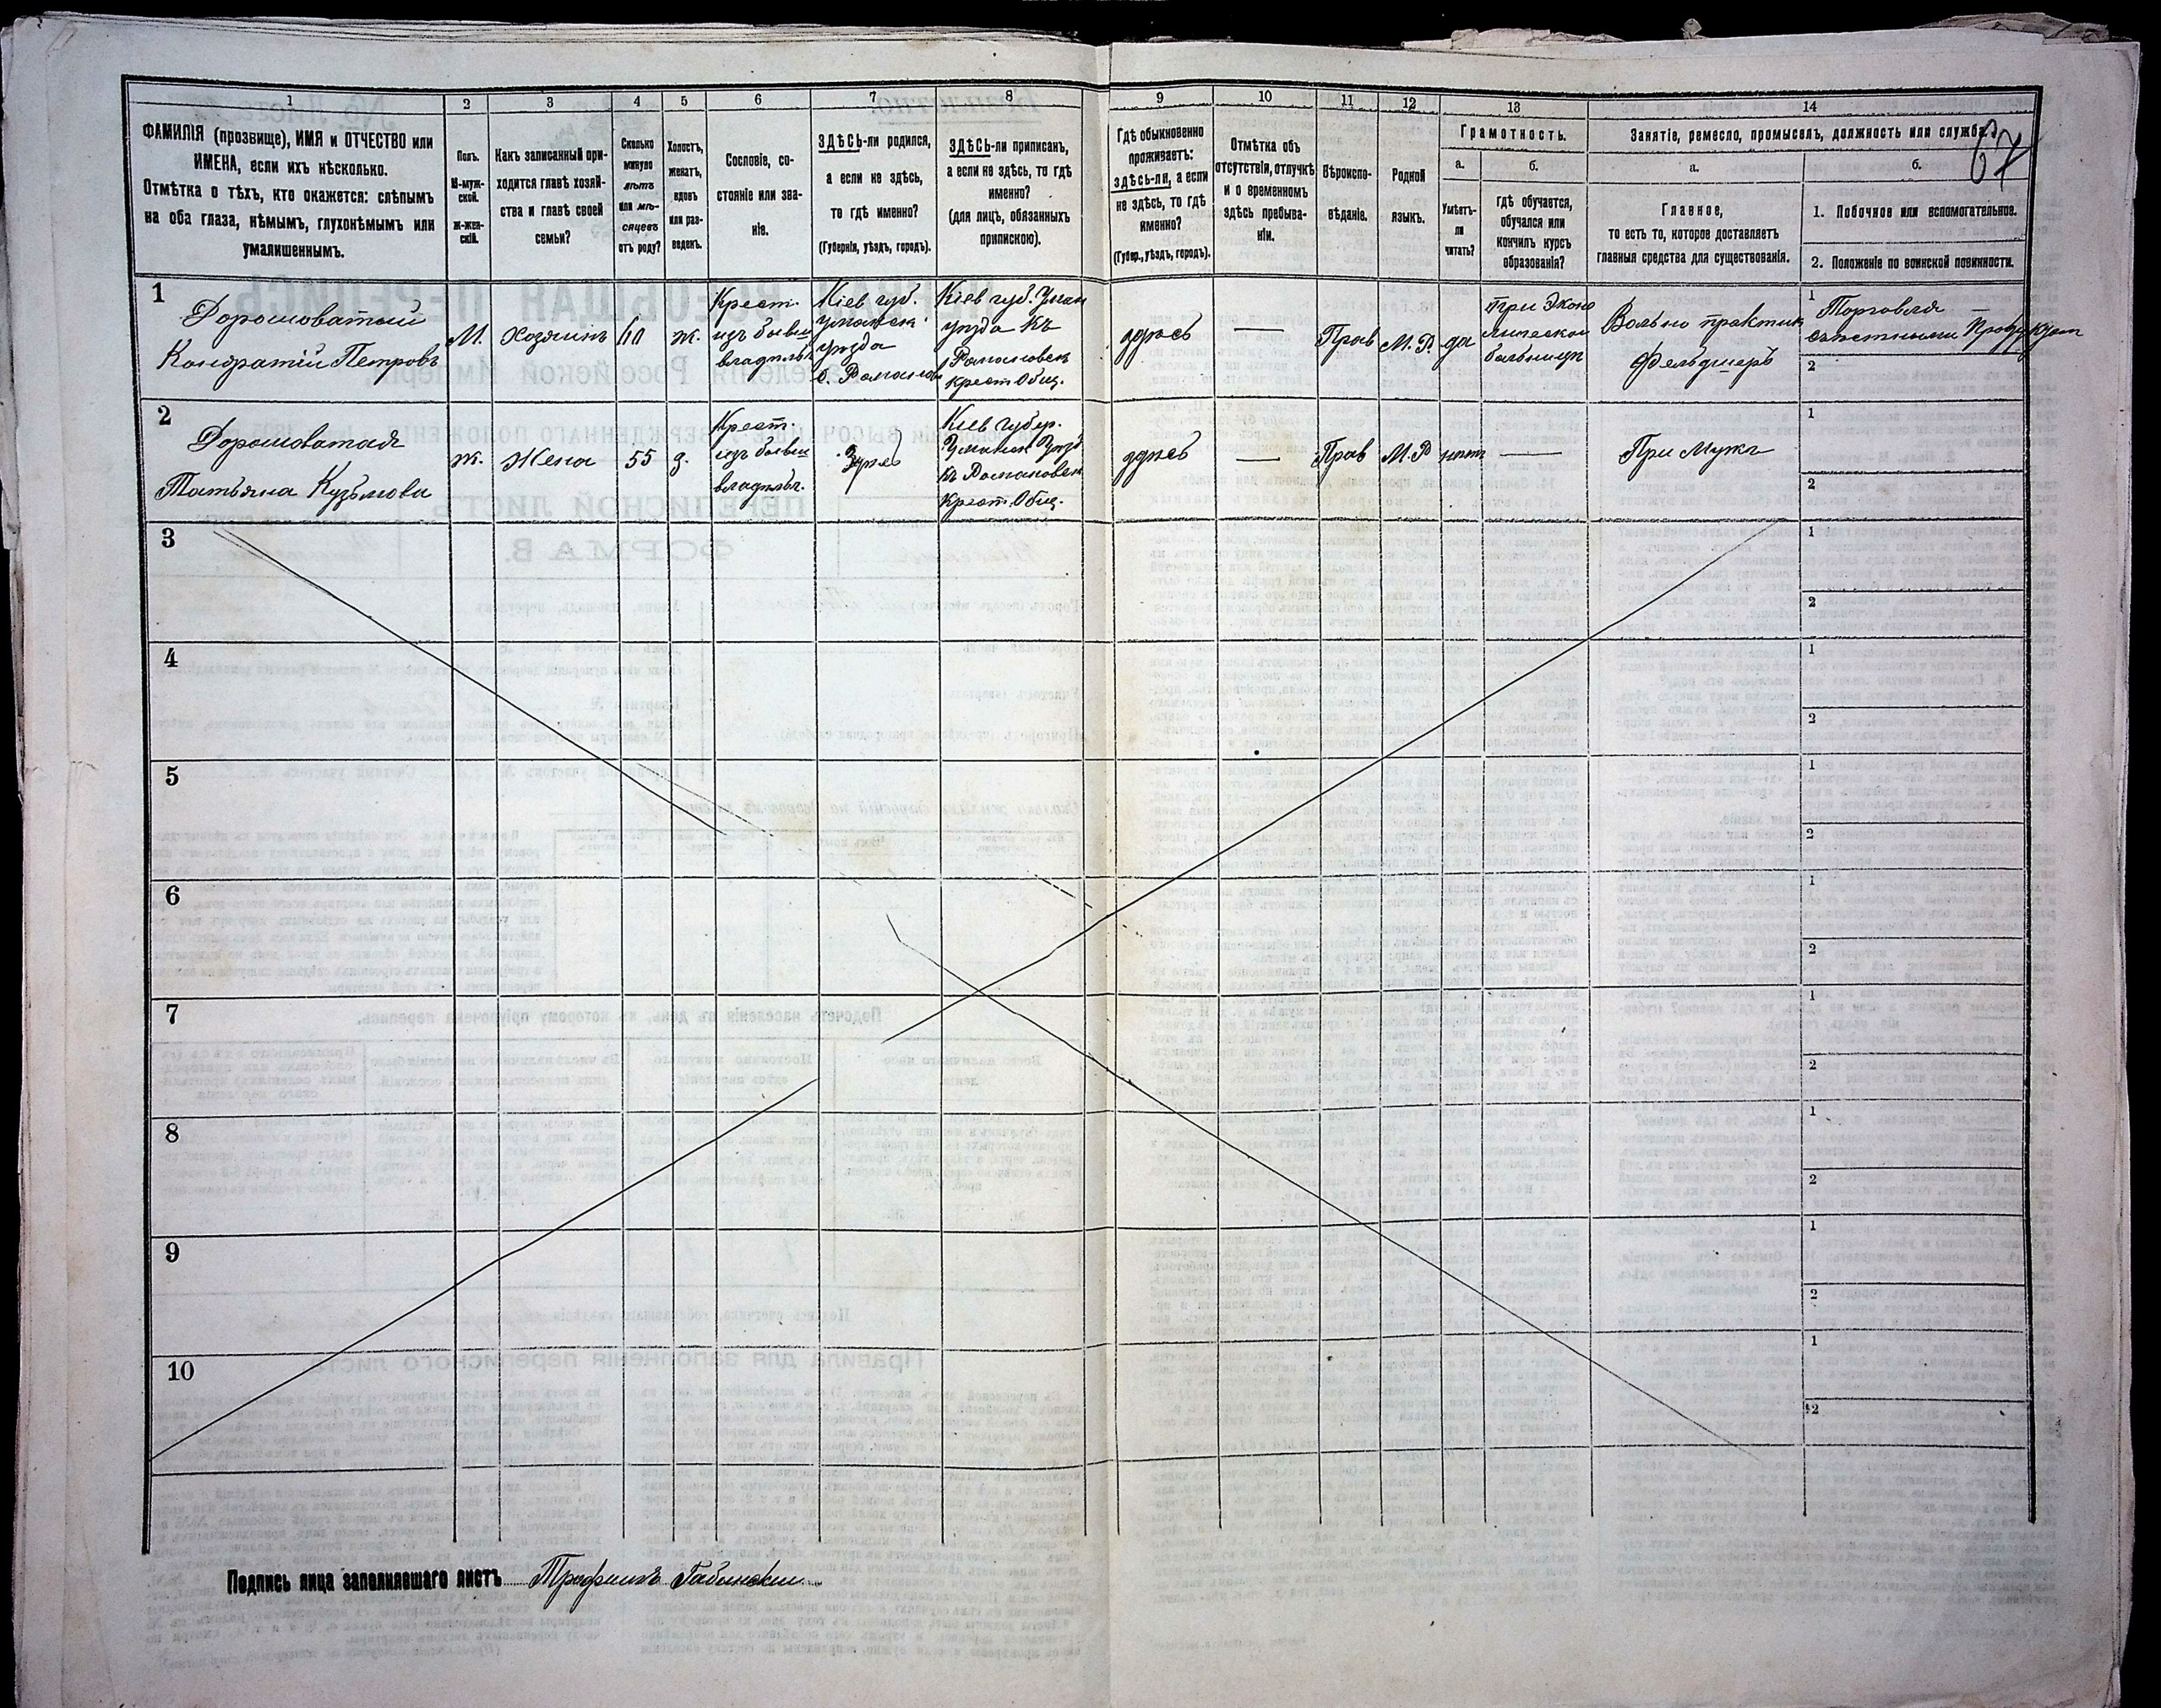 67
1
2
3
4
5
6
7
8
9
10
11
12
13
14
ФАМИЛІЯ (прозвище), ИМЯ и ОТЧЕСТВО или
ИМЕНА, если ихъ нѣсколько.
Отмѣтка о тѣхъ, кто окажется: слѣпымъ
на оба глаза, нѣмымъ, глухонѣмымъ или
умалишеннымъ.
Полъ.
М-муж-
ской.
Ж-жен-
скій.
Какъ записанный при-
ходится главѣ хозяй-
ства и главѣ своей
семьи?
Сколько
минуло
лѣтъ
или мѣ-
сяцевъ
отъ роду?
Холостъ,
женатъ,
вдовъ
или раз-
веденъ.
Сословіе, со-
стояніе или зва-
ніе.
ЗДѢСЬ-ли родился,
а если не здѣсь,
то гдѣ именно?
(Губернія, уѣздъ, городъ).
ЗДѢСЬ-ли приписанъ,
а если не здѣсь, то гдѣ
именно?
(для лицъ, обязанныхъ
припискою).
Гдѣ обыкновенно
проживаетъ:
здѣсь-ли, а если
не здѣсь, то гдѣ
именно?
(Губер., уѣздъ, городъ).
Отмѣтка объ
отсутствіи, отлучкѣ
и о временномъ
здѣсь пребыва-
ніи.
Вѣроиспо-
вѣданіе.
Родной
языкъ.
Грамотность.
а.
Умѣетъ-
ли
читать?
б.
гдѣ обучается,
обучался или
кончилъ курсъ
образованія?
Занятіе, ремесло, промыселъ, должность или служба.
а.
Главное,
то есть то, которое доставляетъ
главныя средства для существованія.
б.
1. Побочное или вспомогательное.
2. Положеніе по воинской повинности.
1
Дорошоватый
Кондратій Петровъ
М.
Хозяинъ
ж.
Крест.
изъ бывш
владѣль
Кіев губ.
уманск
уѣзда
с. Романов
Кіев губ. Уман
уѣзда къ
Романовск
крест Общ.
здѣсь
—
Прав
М. Р.
да
при Эконо
мической
больницѣ
Вольно практик
Фельдшеръ
1
Торговля
съѣстными Продуктам
2
2
Дорошоватая
Татьяна Кузьмова
ж.
Жена
55
з.
Крест.
изъ бывш
владѣль.
Здѣсь
Кіев губер.
Уманск Уѣзд
къ Романовск
Крест. Общ.
здѣсь
—
Прав
М. Р
нѣтъ
—
При Мужѣ
1
2
3
1
2
4
1
2
5
1
2
6
1
2
7
1
2
8
1
2
9
1
2
10
1
2
Подпись лица заполнявшаго листъ Трофимъ